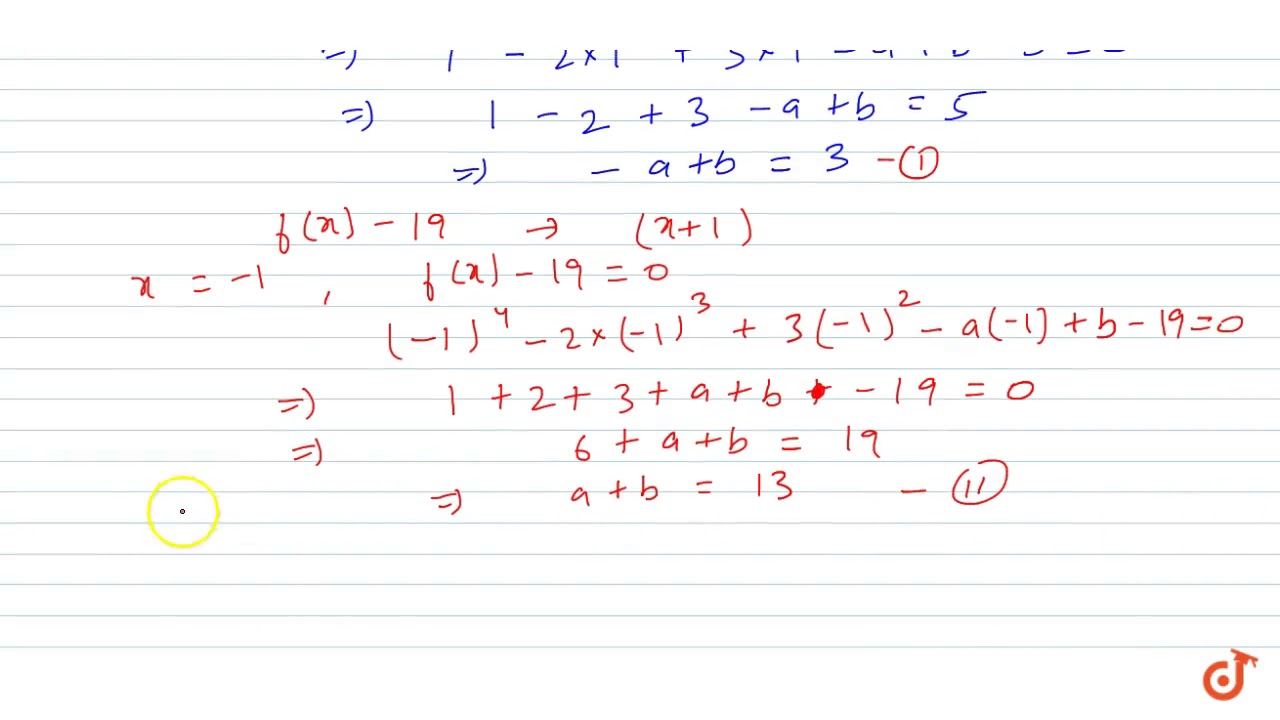 => 1 - 2 + 3 - a + b = 5
=> - a + b = 3 - ①
f(x) - 19 → (x+1)
x = -1 , f(x) - 19 = 0
(-1)⁴ - 2×(-1)³ + 3(-1)² - a(-1) + b - 19 = 0
=> 1 + 2 + 3 + a + b - 19 = 0
=> 6 + a + b = 19
=> a + b = 13 - ⑪